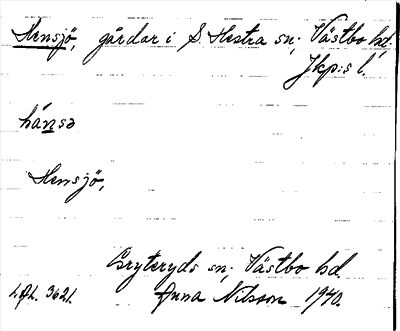 Hensjö, gårdar i S. Hestra sn; Västbo hd;
Jkp:s l.
hánsə
Hensjö,
Gryteryds sn; Västbo hd.
L.Gl. 3621. Anna Nilsson 1940.